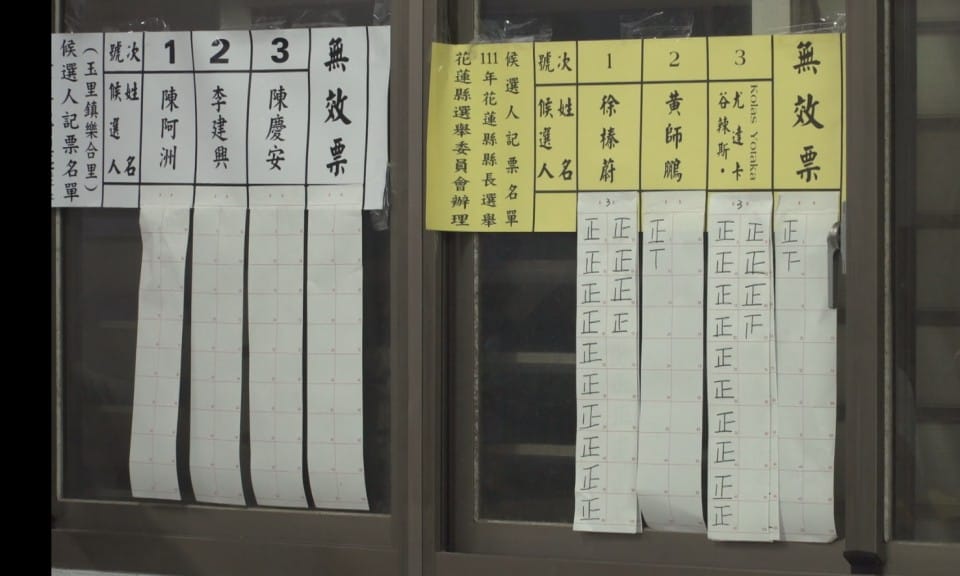 候選人記票名單
（玉里鎮樂合里）
號次
候選人
姓名
1
陳阿洲
2
李建興
3
陳慶安
無效票
候選人記票名單
111年花蓮縣縣長選舉
花蓮縣選舉委員會辦理
號次
候選人
姓名
1
徐榛蔚
2
黃師鵬
3
谷辣斯·尤達卡
Kolas Yotaka
無效票
3
正正
正正
正正
正正
正
正
正
正
正
正
正
丅
3
正正
正正
正正
正
正
正
正
正
正
正
正
下